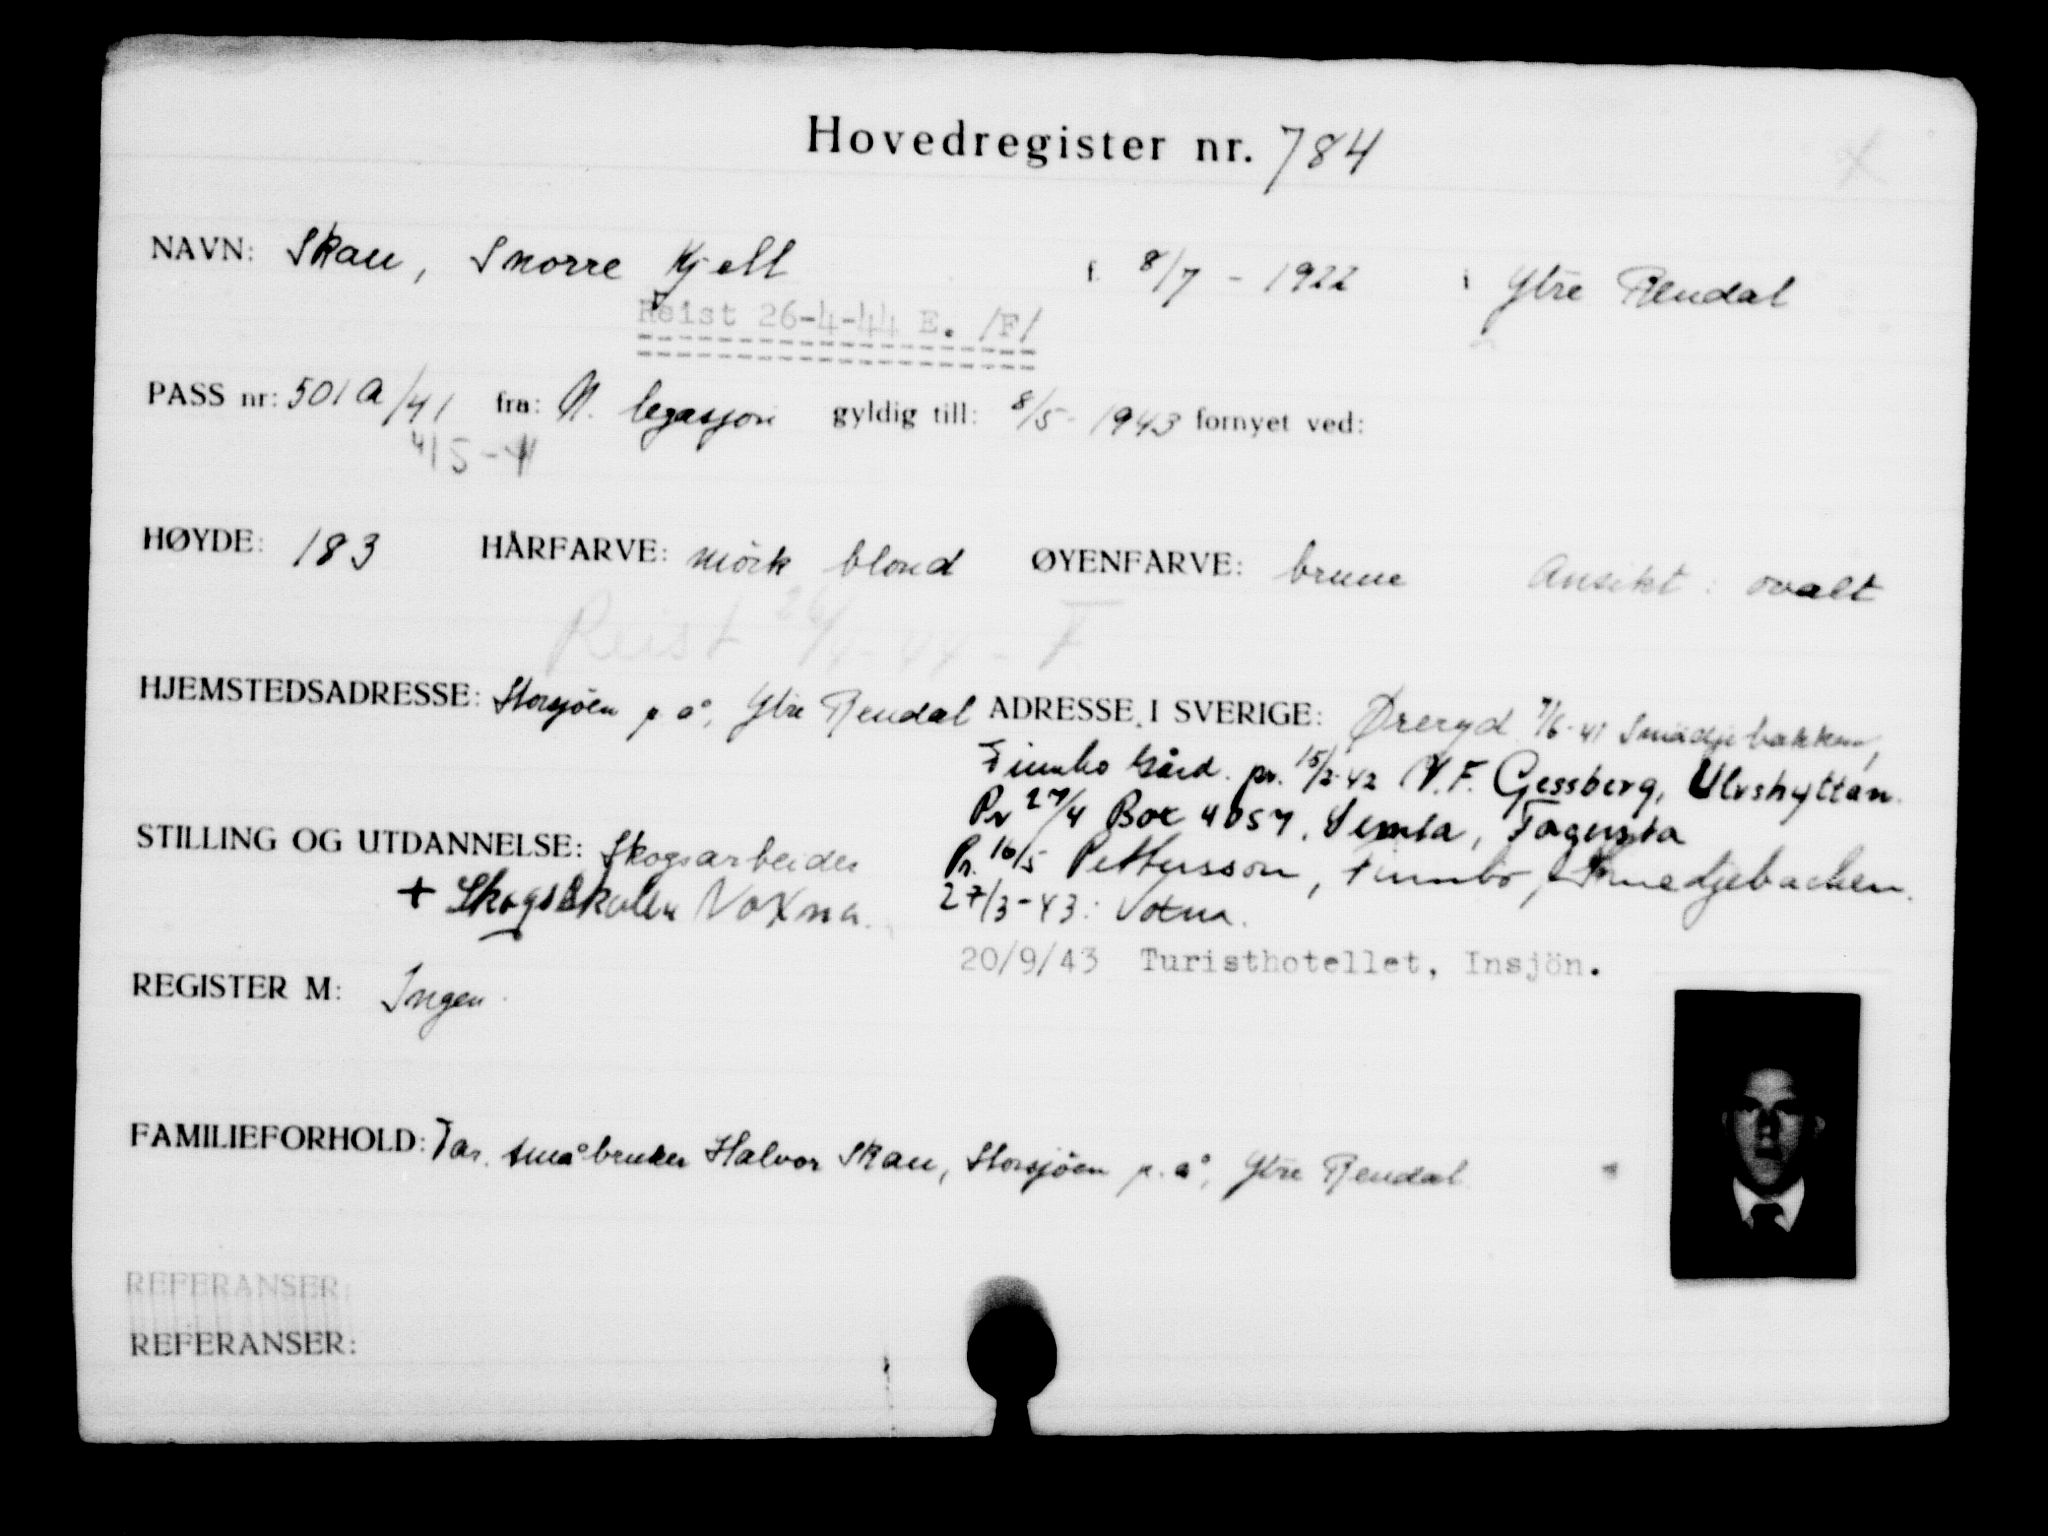 Hovedregister nr. 784
NAVN: Skau, Snorre Kjell f. 8/7 - 1922 i Ytre Rendal
Reist 26-4-44 E. /F/
PASS nr: 501a/41 fra: N. legasjon gyldig till: 8/5 - 1943 fornyet ved:
HØYDE: 183 HÅRFARVE: mörk blond ØYENFARVE: brune Ansikt: ovalt
Reist 26/4-44 - F
HJEMSTEDSADRESSE: Storsjöen p.å, Ytre Rendal ADRESSE I SVERIGE: Øreryd 7/6-41 Smädjebakken,
Fimbo Gård. pr. 15/2-42 N.F. Gessberg, Ulvshyttan.
Pr 27/4 Box 4057, Semla, Fagersta
STILLING OG UTDANNELSE: Skogsarbeider Pr. 16/5 Pettersson, Fimbo, Smedjebacken.
+ Skogsskolen Voxna. 27/3-43: Voxna.
20/9/43 Turisthotellet, Insjön.
REGISTER M: Ingen.
FAMILIEFORHOLD: Far. småbruker Halvor Skau, Storsjöen p.å, Ytre Rendal
REFERANSER:
REFERANSER: